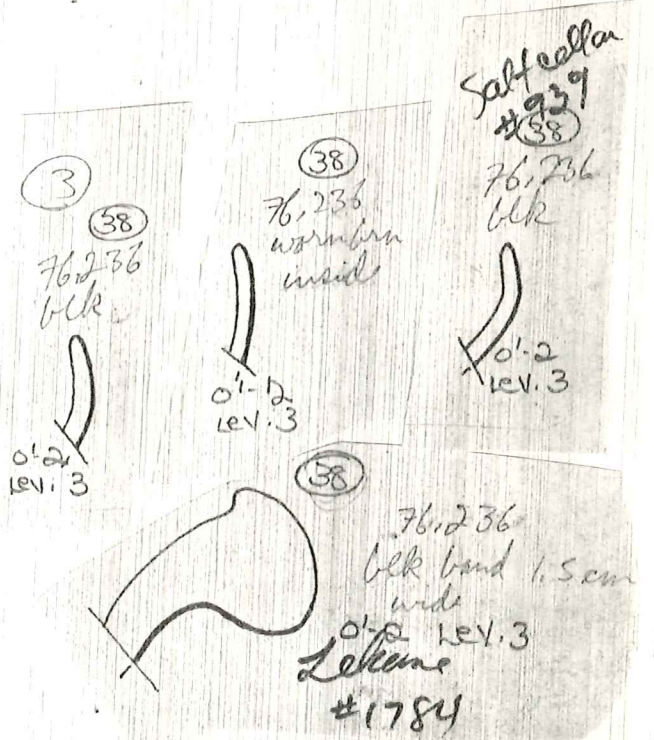 3
38
76,236
blk
0'-2
Lev. 3
38
76,236
worn brn
inside
0'-12
Lev. 3
Saltcellar
#939
38
76,236
blk
0'-2
Lev. 3
38
76,236
blk band 1.5 cm
wide
0'-2 Lev. 3
Lekane
#1784